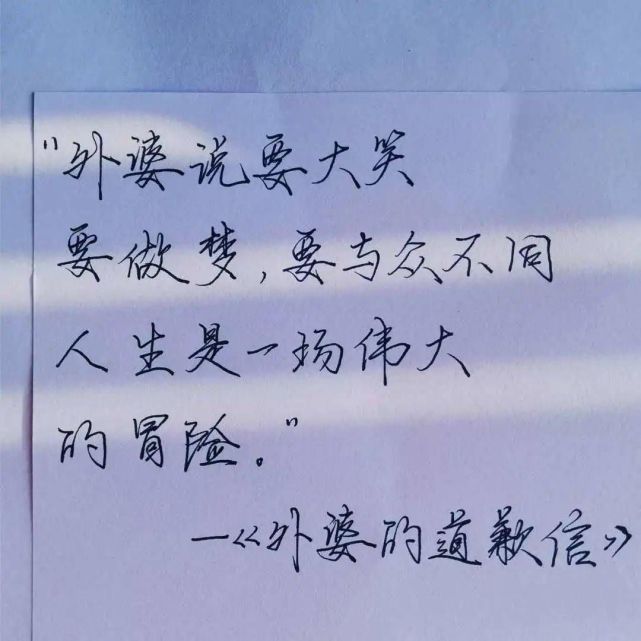 "外婆说要大笑
要做梦,要与众不同
人生是一场伟大
的冒险。"
—《外婆的道歉信》